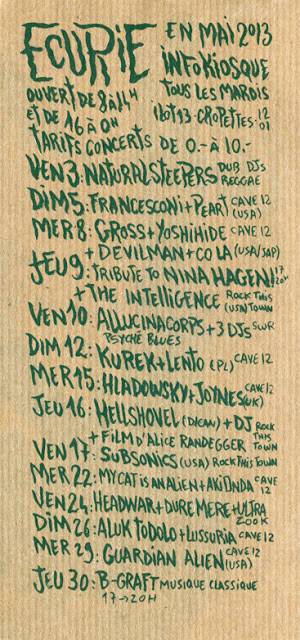 ECURIE EN MAI 2013
INFOKIOSQUE
OUVERT DE 8 À 14H TOUS LES MARDIS
ET DE 16 À 0H ILOT 13 · CROPETTES · 12
01
TARIFS CONCERTS DE 0.- À 10.-
VEN 3: NATURAL STEEPERS DUB DJs
REGGAE
DIM 5: FRANCESCONI + PEART CAVE 12
(USA)
MER 8: GROSS + YOSHIHIDE CAVE 12
+ DEVILMAN + CO LA (USA/JAP)
JEU 9: TRIBUTE TO NINA HAGEN!! 17
20H
+ THE INTELLIGENCE ROCK THIS
(USA) TOWN
VEN 10: ALLUCINACORPS + 3 DJs SWR
PSYCHÉ BLUES
DIM 12: KUREK + LENTO (PL) CAVE 12
MER 15: HLADOWSKY + JOYNES CAVE 12
(UK)
JEU 16: HELLSHOVEL (CAN) + DJ ROCK
THIS
+ FILM D'ALICE RANDEGGER TOWN
VEN 17: SUBSONICS (USA) ROCK THIS TOWN
MER 22: MY CAT IS AN ALIEN + AKI ONDA CAVE
12
VEN 24: HEADWAR + DURE MERE + ULTRA
ZOOK
DIM 26: ALUK TODOLO + LUSSURIA CAVE
12
MER 29: GUARDIAN ALIEN CAVE 12
(USA)
JEU 30: B-GRAFT MUSIQUE CLASSIQUE
17→20H